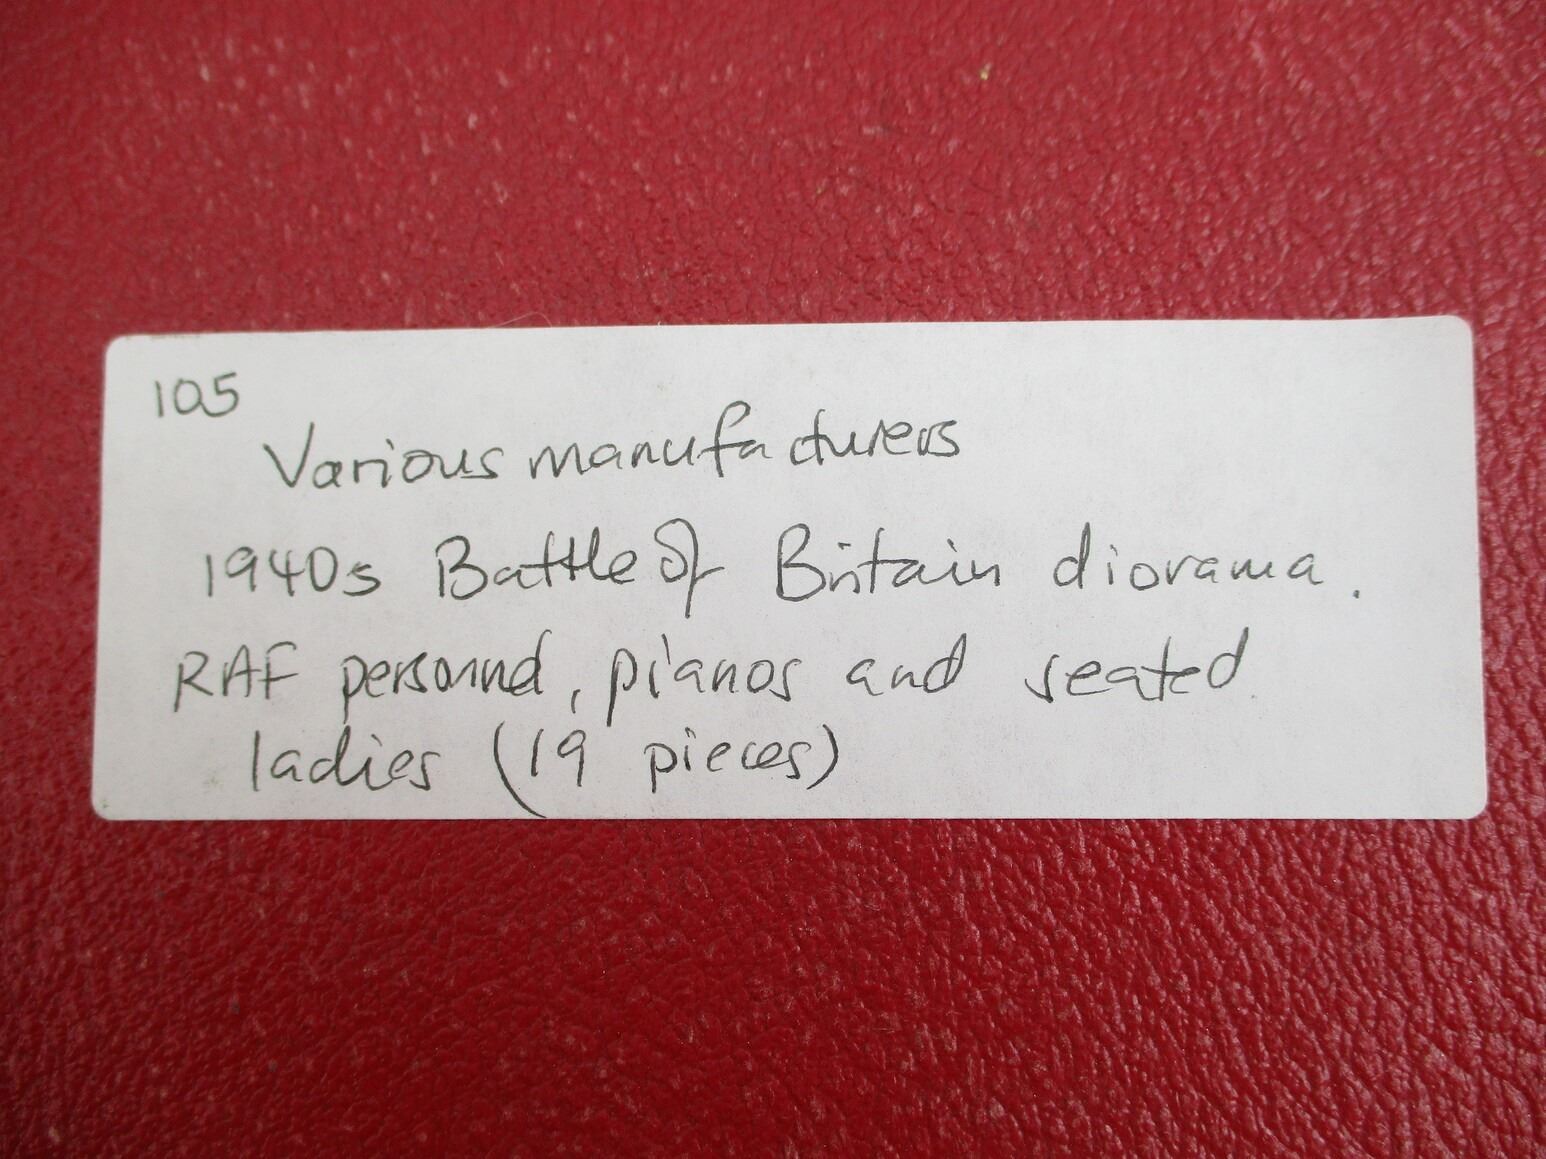 105
Various manufacturers
1940s Battle of Britain diorama.
RAF personnel, pianos and seated
ladies (19 pieces)